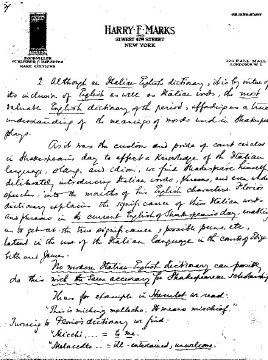 HARRY F. MARKS
NEW YORK
2. Although an Italian English dictionary, it is by virtue of
its inclusion of English as well as Italian words, the most
valuable English dictionary of the period, affording us a true
understanding of the meanings of words used in Shakespeare's
plays.
As it was the custom and pride of court circles
in Shakespeare's day to affect a knowledge of the Italian
language, slang, and idiom, we find Shakespeare himself
deliberately introducing Italian words, phrases, and even whole
speeches, into the mouths of his English characters. Florio's
dictionary explains the significance of these Italian words
and phrases in the current English of Shakespeare's day, enabling
us to get at the true significance, possible puns, etc.,
latent in the use of the Italian language in the courts of Eliza-
beth and James.
No modern Italian English dictionary can possibly
do this with the true accuracy for Shakespearean scholarship
Thus for example in Hamlet we read:
"This is miching mallecho, it means mischief"
Turning to Florio's dictionary we find:
"Micchi
"Malecetto - Ill-entertained, unwelcome.